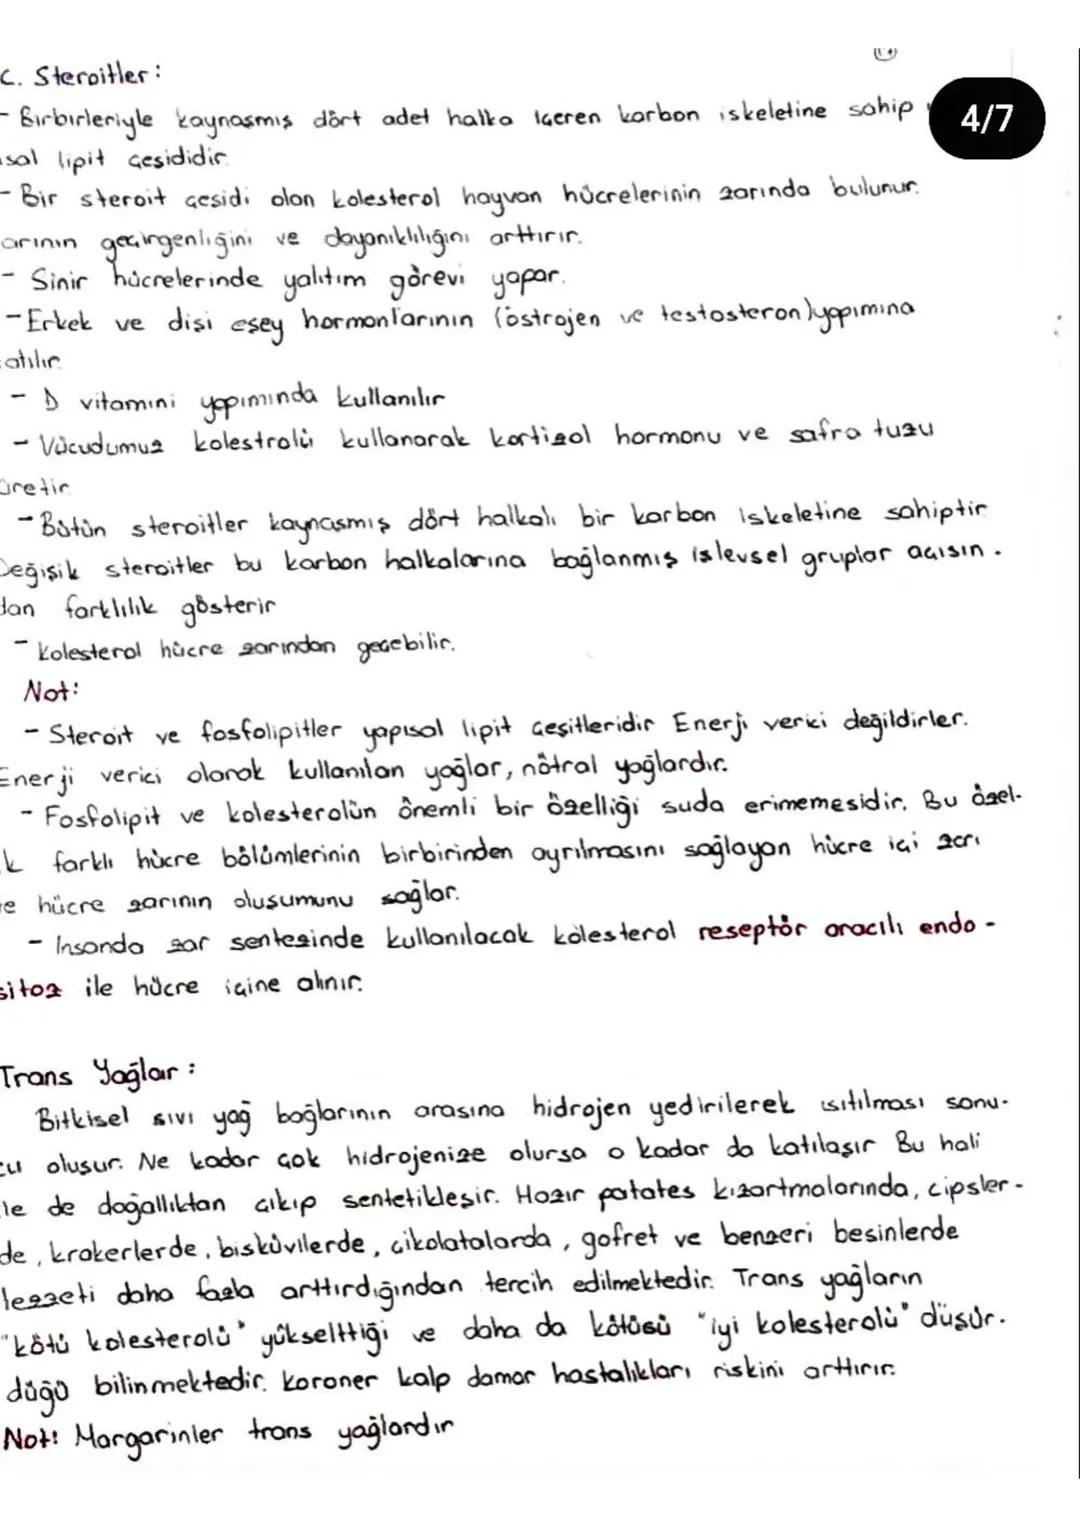 C. Steroitler:
4/7
- Birbirleriyle kaynaşmış dört adet halka içeren karbon iskeletine sahip
sal lipit çeşididir.
- Bir steroit çeşidi olan kolesterol hayvan hücrelerinin zarında bulunur.
arının geçirgenliğini ve dayanıklılığını arttırır.
- Sinir hücrelerinde yalıtım görevi yapar.
- Erkek ve dişi eşey hormonlarının (östrojen ve testosteron) yapımına
atılır.
- D vitamini yapımında kullanılır
- Vücudumuz kolestrolü kullanarak kortizol hormonu ve safra tuzu
üretir.
- Bütün steroitler kaynaşmış dört halkalı bir karbon iskeletine sahiptir
Değişik steroitler bu karbon halkalarına bağlanmış işlevsel gruplar açısın.
dan farklılık gösterir
- Kolesterol hücre zarından geçebilir.
Not:
- Steroit ve fosfolipitler yapısal lipit çeşitleridir Enerji verici değildirler.
Enerji verici olarak kullanılan yağlar, nötral yağlardır.
- Fosfolipit ve kolesterolün önemli bir özelliği suda erimemesidir. Bu özel-
k farklı hücre bölümlerinin birbirinden ayrılmasını sağlayan hücre içi zarı
e hücre zarının oluşumunu sağlar.
- İnsanda zar sentezinde kullanılacak kolesterol reseptör aracılı endo-
sitoz ile hücre içine alınır.
Trans Yağlar:
Bitkisel sıvı yağ bağlarının arasına hidrojen yedirilerek ısıtılması sonu-
cu oluşur. Ne kadar çok hidrojenize olursa o kadar da katılaşır Bu hali
ile de doğallıktan çıkıp sentetikleşir. Hazır patates kızartmalarında, cipsler-
de, krakerlerde, bisküvilerde, çikolatalarda, gofret ve benzeri besinlerde
lezzeti daha fazla arttırdığından tercih edilmektedir. Trans yağların
"kötü kolesterolü" yükselttiği ve daha da kötüsü "iyi kolesterolü" düşür-
düğü bilinmektedir. Koroner kalp damar hastalıkları riskini arttırır.
Not: Margarinler trans yağlardır